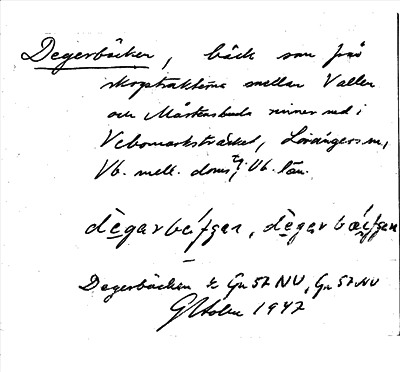 Degerbäcken, bäck som från
skogstrakterna mellan Vallen
och Mårtensboda rinner ned i
Vebomarksträsket, Lövångers sn,
Vb. mell. doms., Vb. län.
dègarbä́ʃʃen, dègarbǽʃʃen
Degerbäcken Gn 52 NV, Gn 52 NV
1947